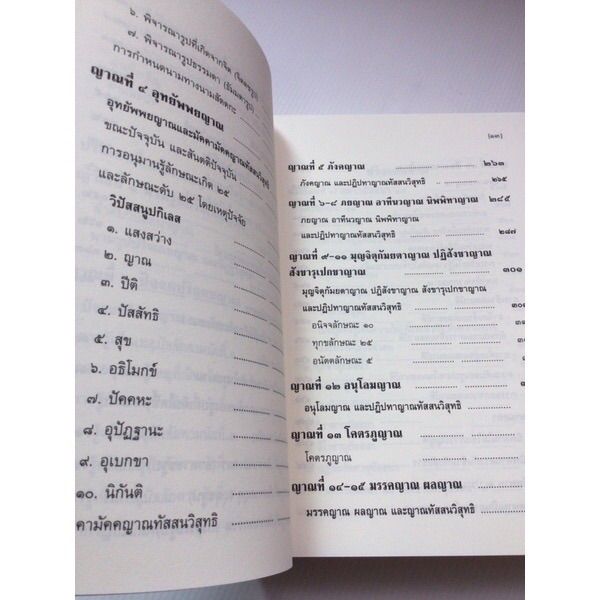 ๖. พิจารณารูปที่เกิดจากจิต (จิตตชรูป)
๗. พิจารณารูปธรรมดา (ธัมมตารูป)
การกำหนดนามทางนามสัตตกะ
ญาณที่ ๔ อุทยัพพยญาณ
อุทยัพพยญาณและมัคคามัคคญาณทัสสนวิสุทธิ
ขณะปัจจุบัน และสันตติปัจจุบัน
การอนุมานรู้ลักษณะเกิด ๒๕
และลักษณะดับ ๒๕ โดยเหตุปัจจัย
วิปัสสนูปกิเลส
๑. แสงสว่าง
๒. ญาณ
๓. ปีติ
๔. ปัสสัทธิ
๕. สุข
๖. อธิโมกข์
๗. ปัคคหะ
๘. อุปัฏฐานะ
๙. อุเบกขา
๑๐. นิกันติ
คามัคคญาณทัสสนวิสุทธิ
[๑๓]
ญาณที่ ๕ ภังคญาณ ๒๖๓
ภังคญาณ และปฏิปทาญาณทัสสนวิสุทธิ ๒๖๕
ญาณที่ ๖-๘ ภยญาณ อาทีนวญาณ นิพพิทาญาณ ๒๘๕
ภยญาณ อาทีนวญาณ นิพพิทาญาณ
และปฏิปทาญาณทัสสนวิสุทธิ ๒๘๗
ญาณที่ ๙-๑๑ มุญจิตุกัมยตาญาณ ปฏิสังขาญาณ
สังขารุเปกขาญาณ ๓๐๑
มุญจิตุกัมยตาญาณ ปฏิสังขาญาณ สังขารุเปกขาญาณ
และปฏิปทาญาณทัสสนวิสุทธิ
อนิจจลักษณะ ๑๐
ทุกขลักษณะ ๒๕
อนัตตลักษณะ ๕
ญาณที่ ๑๒ อนุโลมญาณ
อนุโลมญาณ และปฏิปทาญาณทัสสนวิสุทธิ
ญาณที่ ๑๓ โคตรภูญาณ
โคตรภูญาณ
ญาณที่ ๑๔-๑๕ มรรคญาณ ผลญาณ
มรรคญาณ ผลญาณ และญาณทัสสนวิสุทธิ